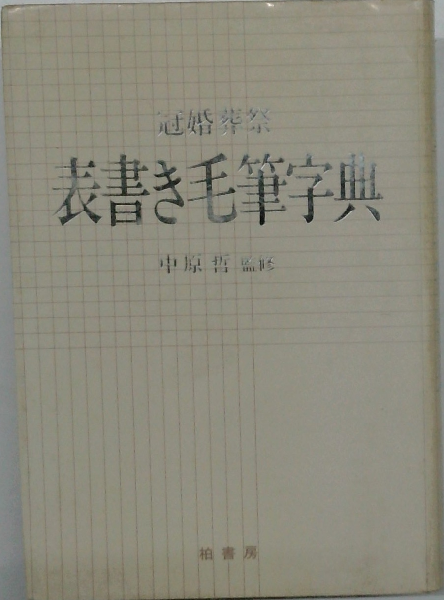 冠婚葬祭
表書き毛筆字典
中原哲 監修
柏書房